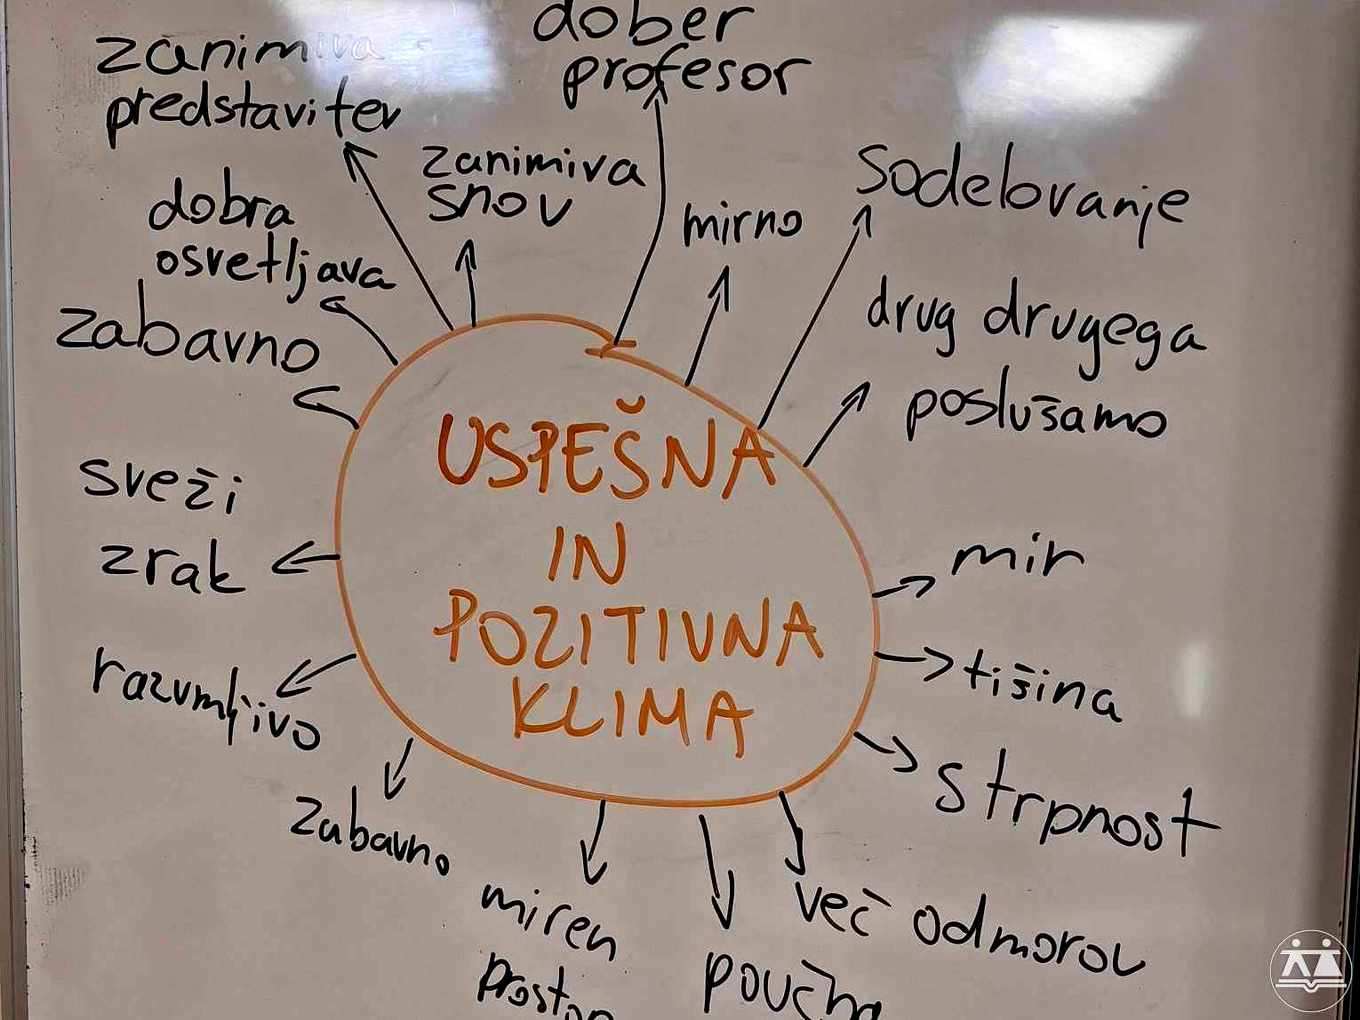 dober
profesor
zanimiva
predstavitev
zanimiva
snov
sodelovanje
dobra
osvetljava
mirno
drug drugega
poslušamo
zabavno
USPEŠNA
IN
POZITIVNA
KLIMA
sveži
zrak
mir
razumljivo
tišina
strpnost
zabavno
miren
prostor
več odmorov